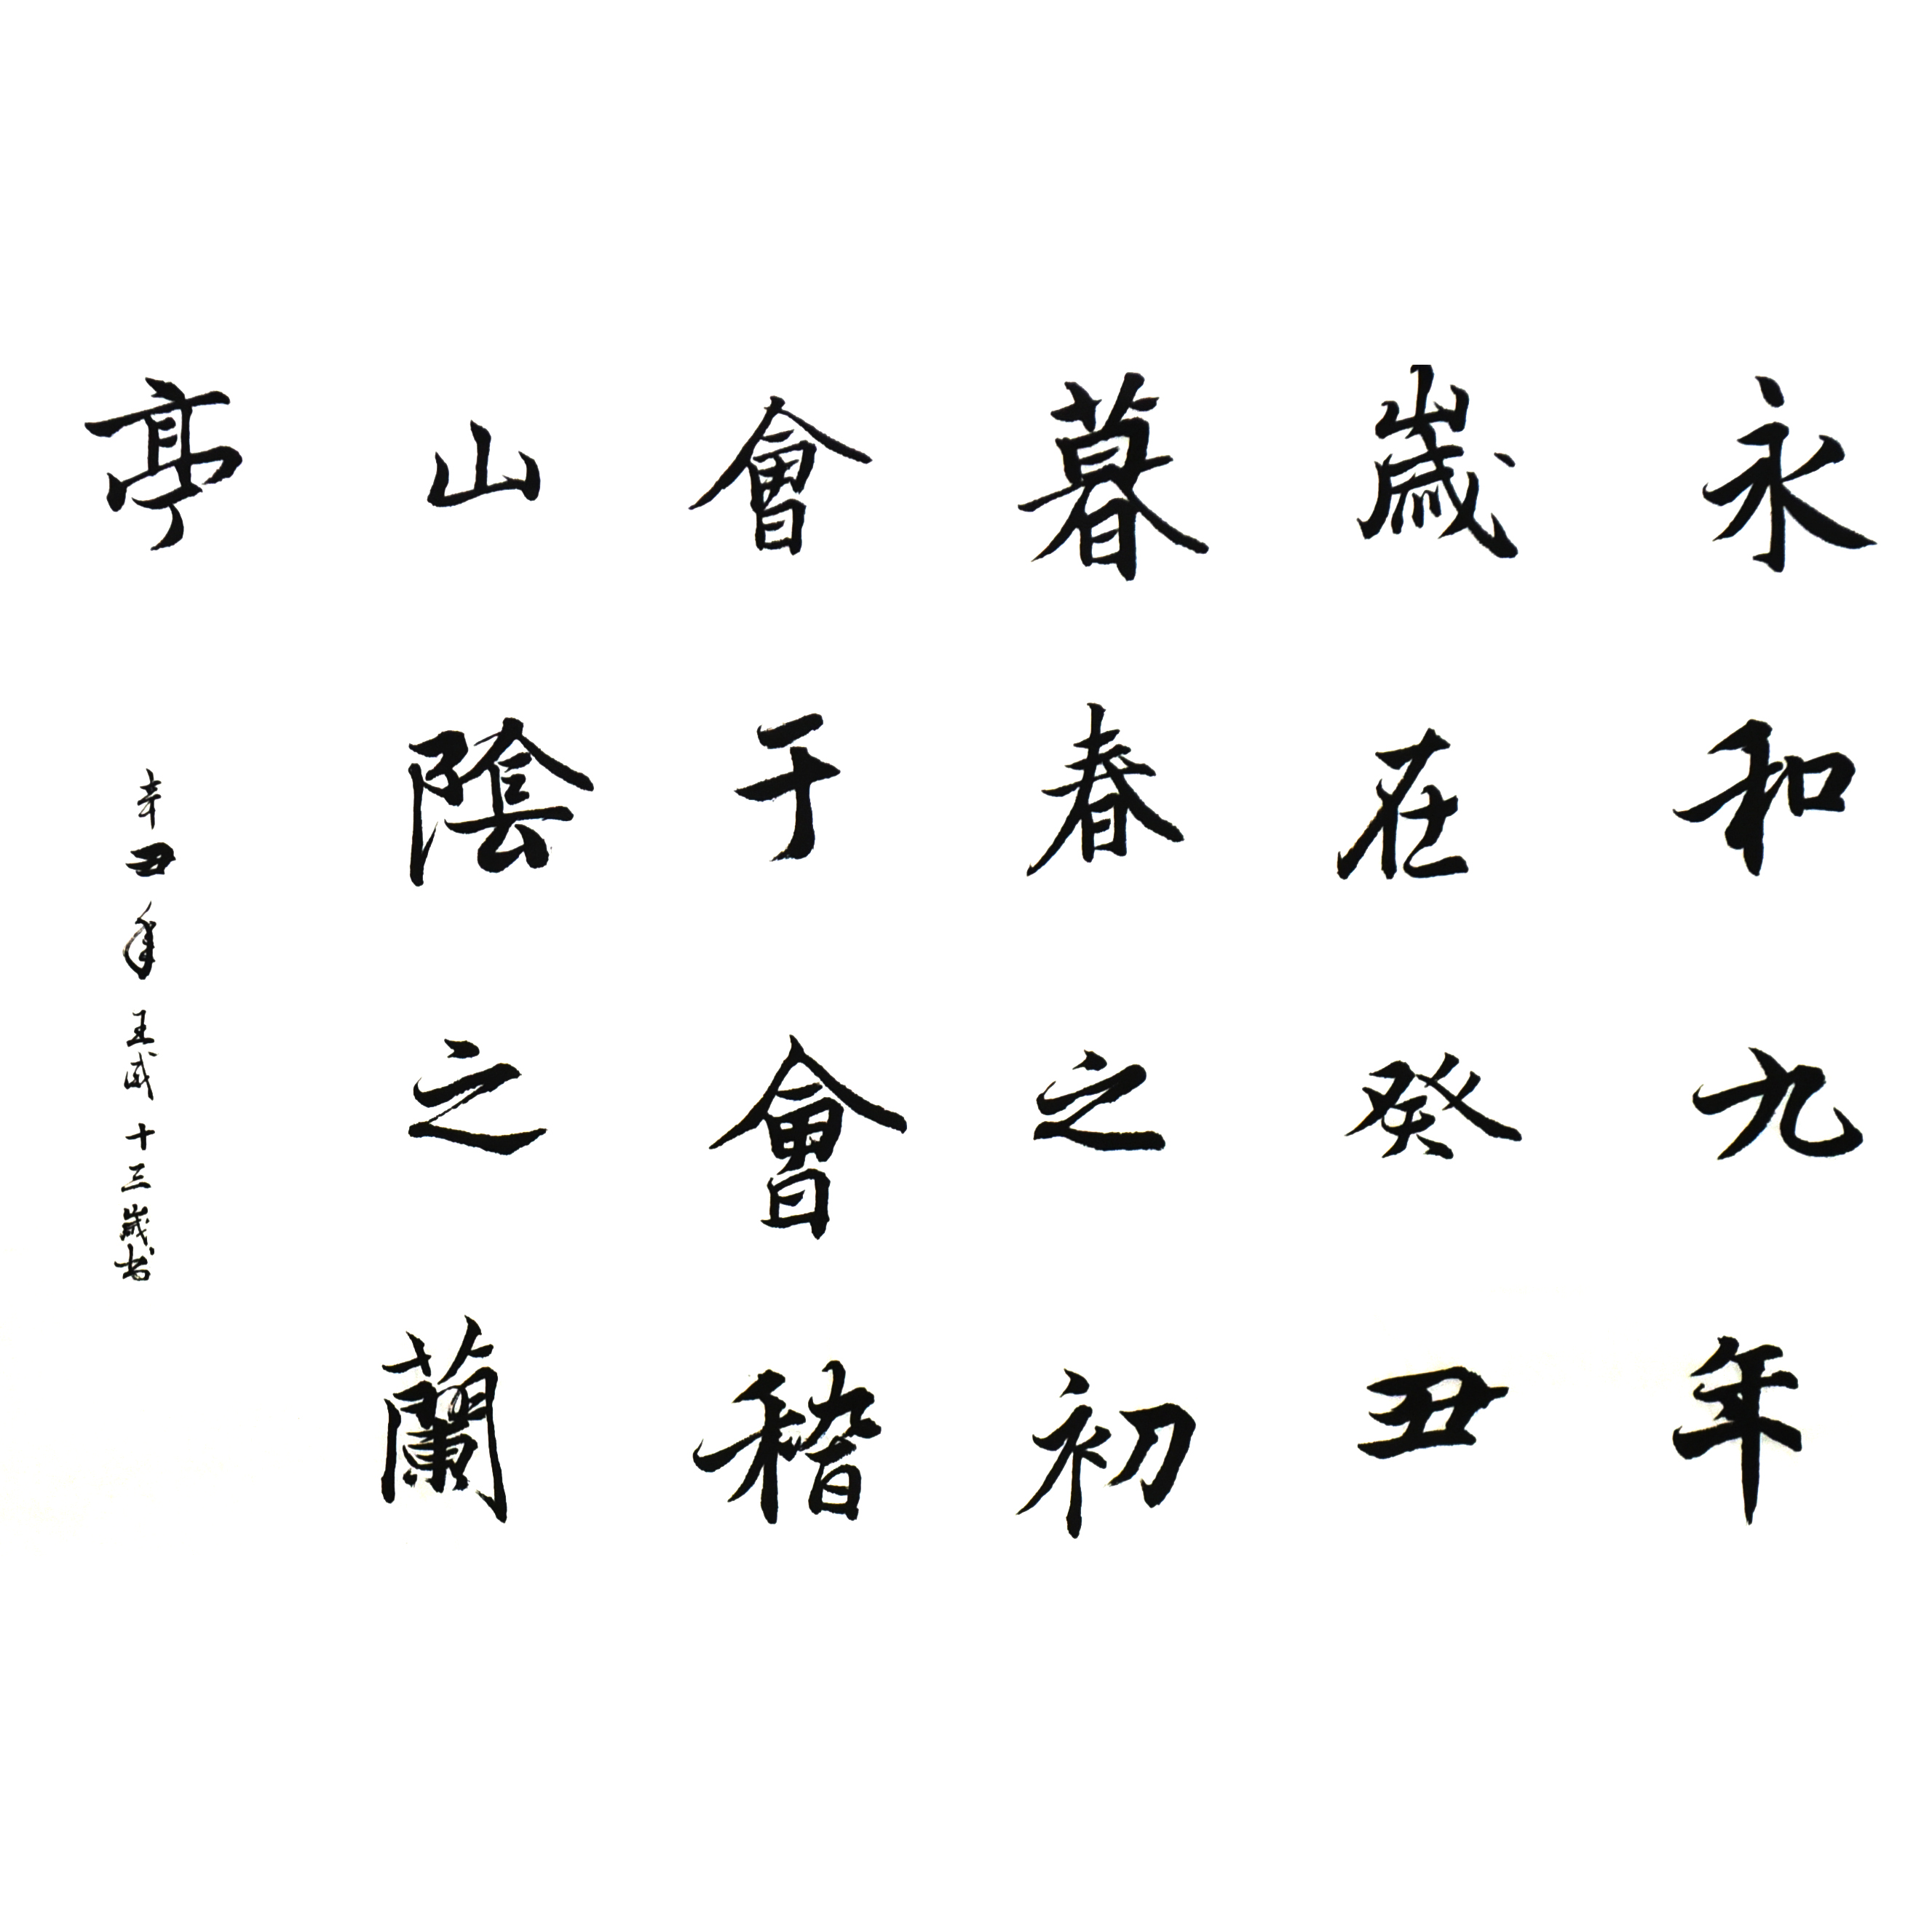 永和九年
歲在癸丑
暮春之初
會于會稽
山陰之蘭
亭
辛丑年 王成 十三歲书